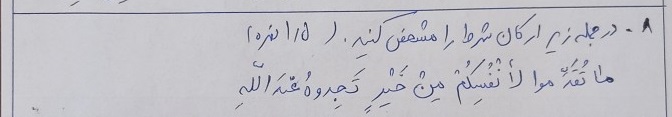 ۸- در جمله زیر ارکان شرط را مشخص کنید. ( ۱/۵ نمره)
ما تُقَدِّموا لِأَنْفُسِكُمْ مِنْ خَيْرٍ تَجِدوهُ عِنْدَ اللّهِ